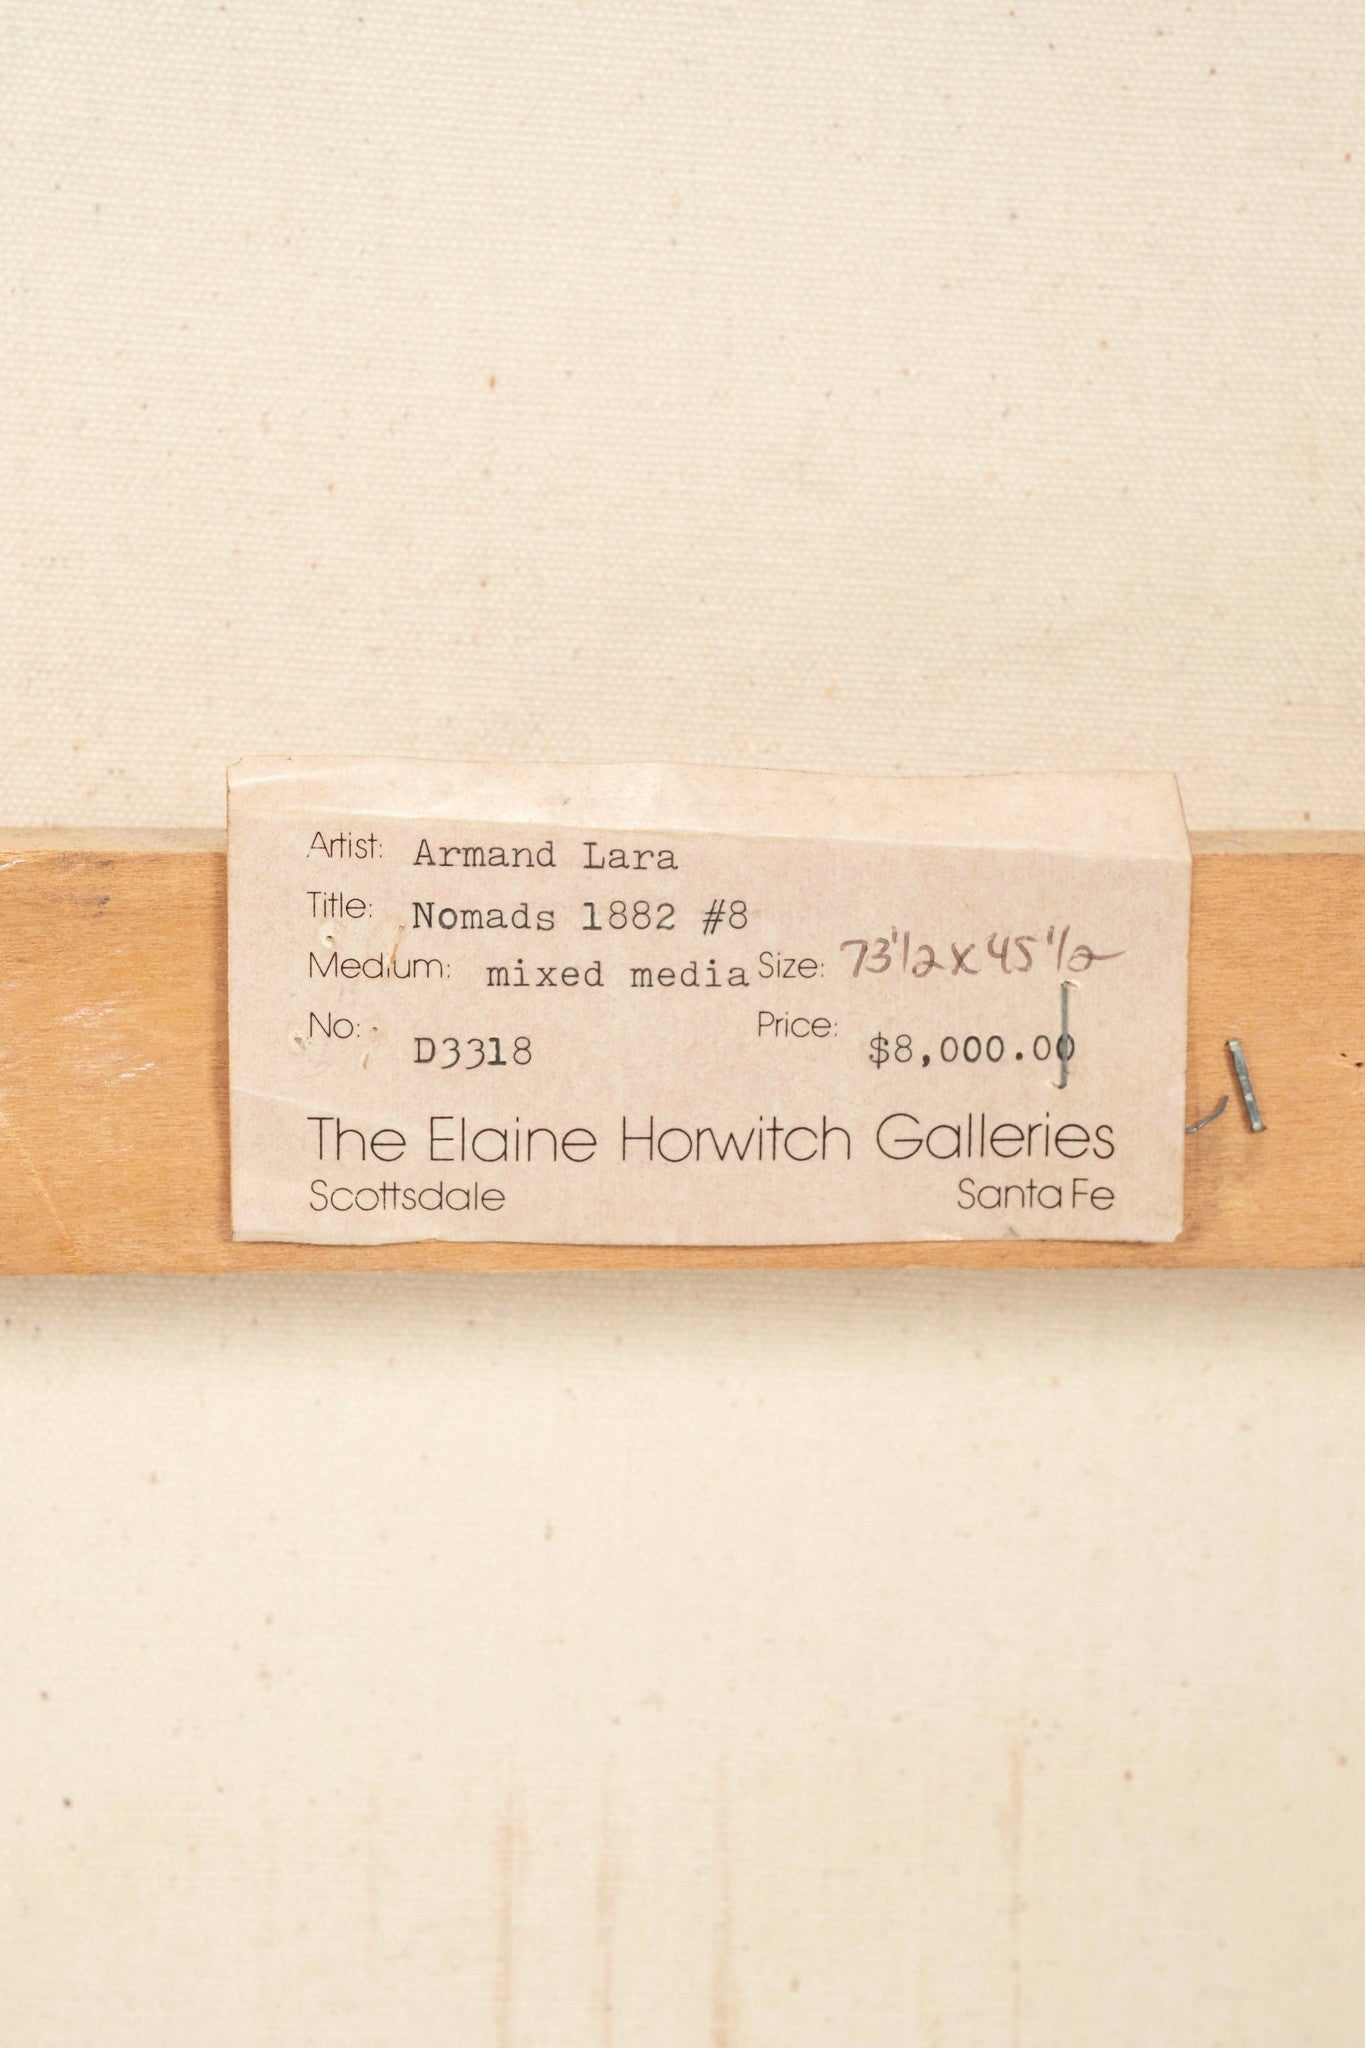 Artist: Armand Lara
Title: Nomads 1882 #8
Medium: mixed media Size: 73 1/2 x 45 1/2
No: D3318 Price: $8,000.00
The Elaine Horwitch Galleries
Scottsdale Santa Fe